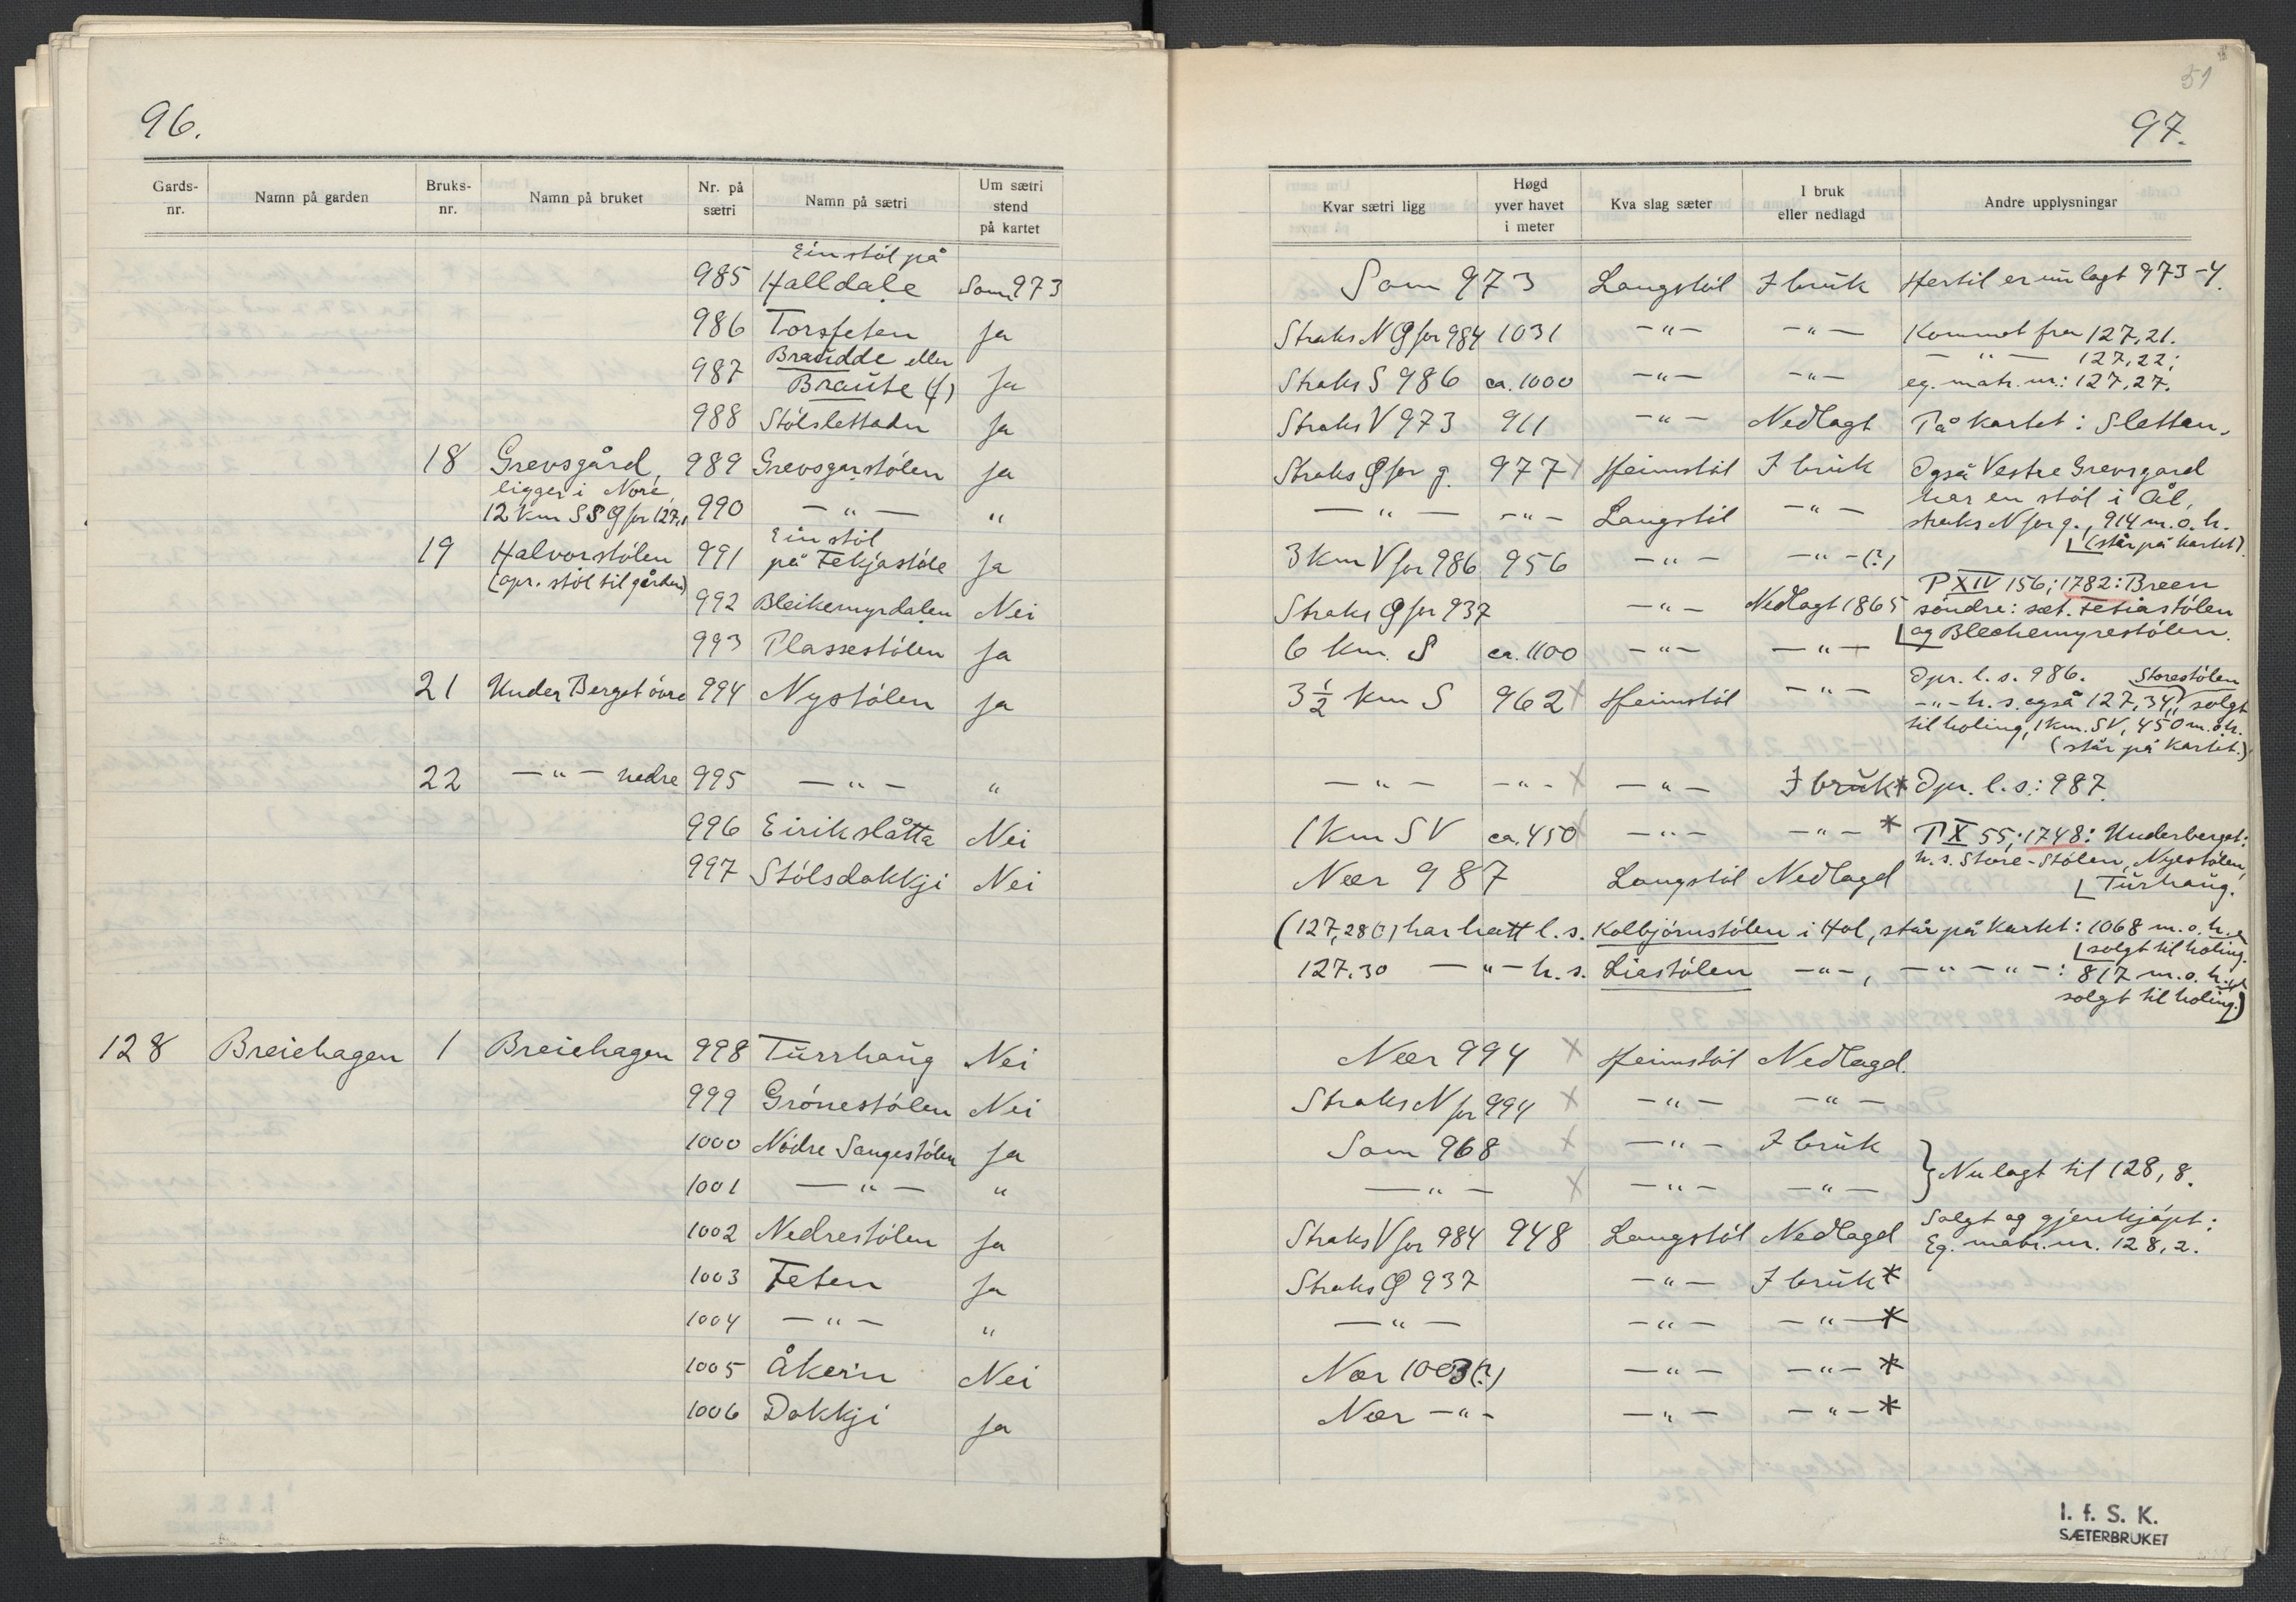 96.
Gards-nr. Namn på garden Bruks-nr. Namn på bruket Nr. på sætri Namn på sætri Um sætri stend på kartet
Ein stöl på
985 Halldale Som 973
986 Torsfeten Ja
Braudde eller
987 Braute (f) Ja
988 Stölslettadn Ja
18 Grevsgård, 989 Grevsgarstölen Ja
ligger i Nore,
12 km SSØ for 127,1 990 — " — "
Ein stöl
19 Halvorstölen 991 på Fekjastöle Ja
(opr. stöl til gården)
992 Bleikemyrdalen Nei
993 Plassestölen Ja
21 Under Berget övre 994 Nystölen Ja
22 — " — nedre 995 — " — "
996 Eirikslåtta Nei
997 Stölsdokkji Nei
128 Breiehagen 1 Breiehagen 998 Turrhaug Nei
999 Grönestölen Nei
1000 Nödre Sangestölen Ja
1001 — " — "
1002 Nedrestölen Ja
1003 Feten Ja
1004 — " — "
1005 Åkern Nei
1006 Dokkji Ja
51
97.
Kvar sætri ligg Høgd yver havet i meter Kva slag sæter I bruk eller nedlagd Andre upplysningar
Som 973 Langstöl I bruk Hertil er nu lagt 973-4.
Straks NØ for 984 1031 — " — — " — Kommet fra 127,21.
— " — 127,22;
Straks S 986 ca. 1000 — " — — " — eg. matr. nr.: 127,27.
Straks V 973 911 — " — Nedlagt På kartet: Sletten.
Straks Ø for g. 977 X Heimstöl I bruk Også Vestre Grevsgard
har en stöl i Ål,
— " — — " — Langstöl — " — straks N for g., 914 m.o.h.
(står på kartet).
3 km V for 986 956 — " — — " — (?)
P XIV 156; 1782: Breen
Straks Ø for 937 — " — Nedlagt 1865 söndre: sæt. Fetiastölen
og Blechemyrestölen.
6 km. S ca. 1100 — " — — " —
Opr. l.s. 986. Storestölen
3 ½ km S 962 X Heimstöl — " — — " — h.s. også 127,34, solgt
til holing, 1 km. SV, 450 m.o.h.
(står på kartet.)
— " — — " — X — " — I bruk * Opr. l.s.: 987.
1 km SV ca. 450 — " — — " — * P X 55; 1748: Underberget:
h.s. Store-Stölen, Nyestölen,
Nær 987 Langstöl Nedlagd Turhaug.
(127,28 (?) har hatt l.s. Kolbjörnstölen i Hol, står på kartet: 1068 m.o.h.,
solgt til holing.
127.30 — " — h.s. Liastölen — " —, — " — " —: 817 m.o.h.,
solgt til holing.)
Nær 994 X Heimstöl Nedlagd.
Straks N for 994 X — " — — " —
Som 968 X — " — I bruk
— " — X — " — — " — } Nu lagt til 128,8.
Straks V for 984 948 Langstöl Nedlagd Solgt og gjenkjöpt;
Eg. matr. nr. 128,2.
Straks Ø 937 — " — I bruk *
— " — — " — — " — *
Nær 1003 (?) — " — — " — *
Nær — " — — " — — " — *
I. f. S. K.
SÆTERBRUKET